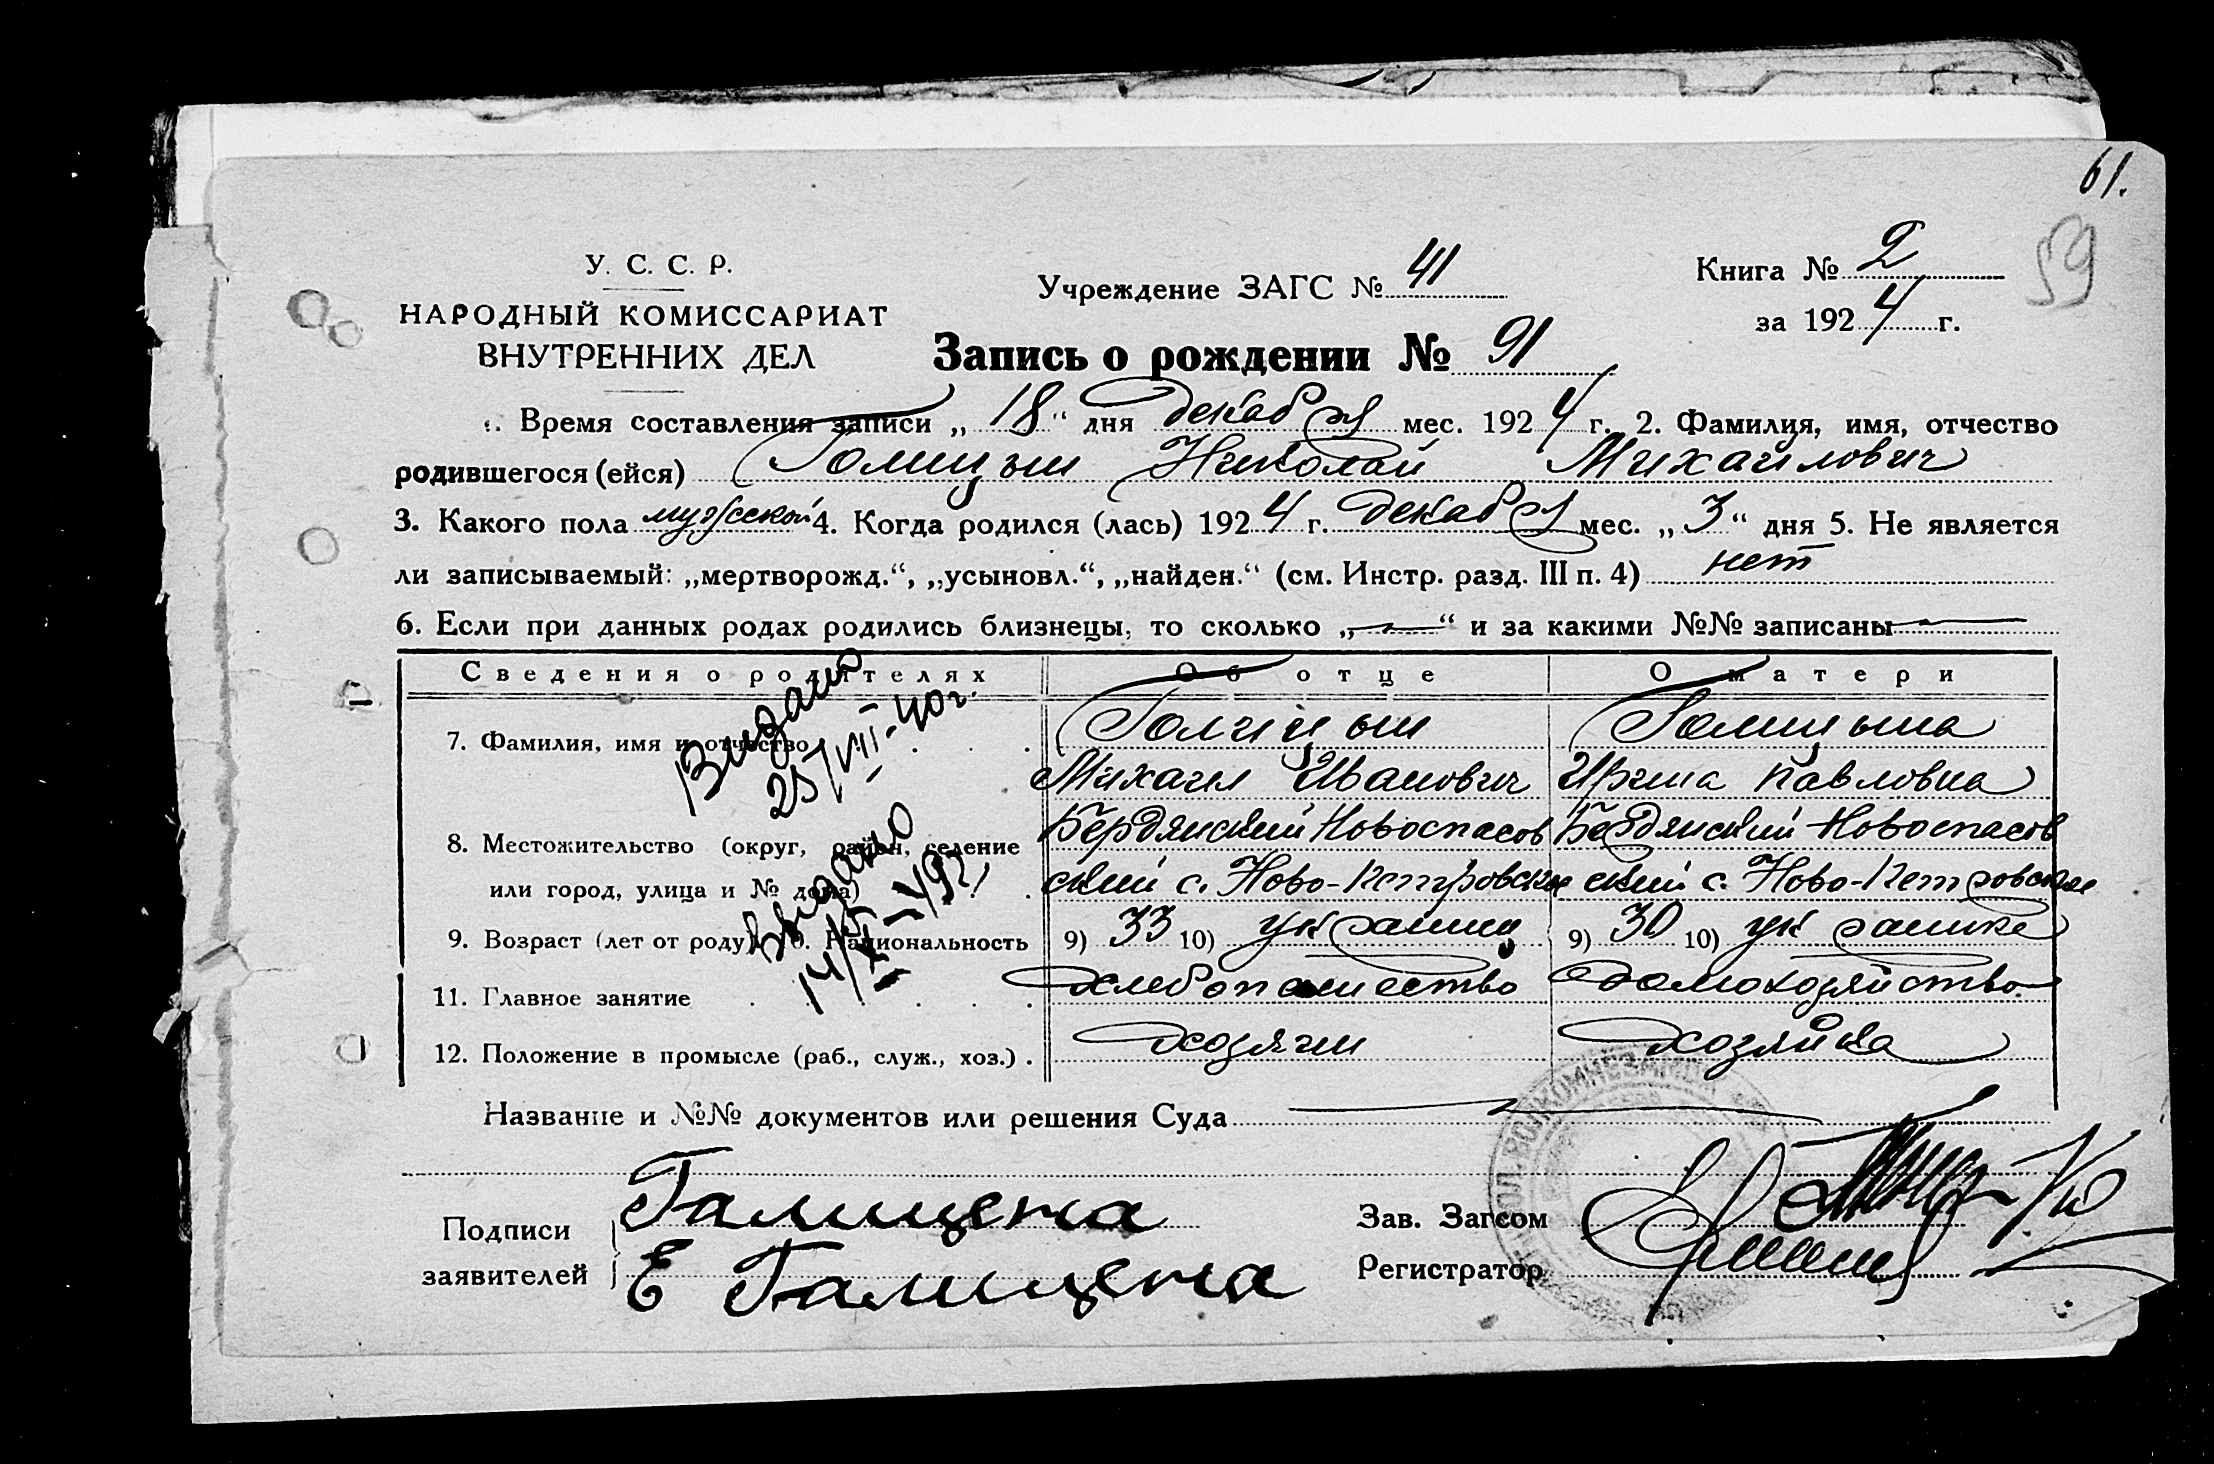 61.
59
У. С. С. Р.
НАРОДНЫЙ КОМИССАРИАТ
ВНУТРЕННИХ ДЕЛ
Учреждение ЗАГС № 41
Книга № 2
за 1924 г.
Запись о рождении № 91
1. Время составления записи „18“ дня декабря мес. 1924 г. 2. Фамилия, имя, отчество
родившегося (ейся) Голицын Николай Михайлович
3. Какого пола мужской 4. Когда родился (лась) 1924 г. декабря мес. „3“ дня 5. Не является
ли записываемый: „мертворожд.“, „усыновл.“, „найден.“ (см. Инстр. разд. III п. 4) нет
6. Если при данных родах родились близнецы, то сколько „—“ и за какими №№ записаны —
Сведения о родителях Об отце О матери
7. Фамилия, имя и отчество Голицын Голицына
Михаил Иванович Ирина Павловна
8. Местожительство (округ, район, селение Бердянский Новоспасов Бердянский Новоспасов
или город, улица и № дома) ский с. Ново-Петровское ский с. Ново-Петровское
9. Возраст (лет от роду) 10. Национальность 9) 33 10) украинец 9) 30 10) украинка
11. Главное занятие хлебопашество домохозяйство
12. Положение в промысле (раб., служ., хоз.) хозяин хозяйка
Видано
25/VIII-40г.
Выдано
14/XI-49г.
Название и №№ документов или решения Суда —
Подписи
заявителей
Галицена
Е Галицена
Зав. Загсом
Регистратор